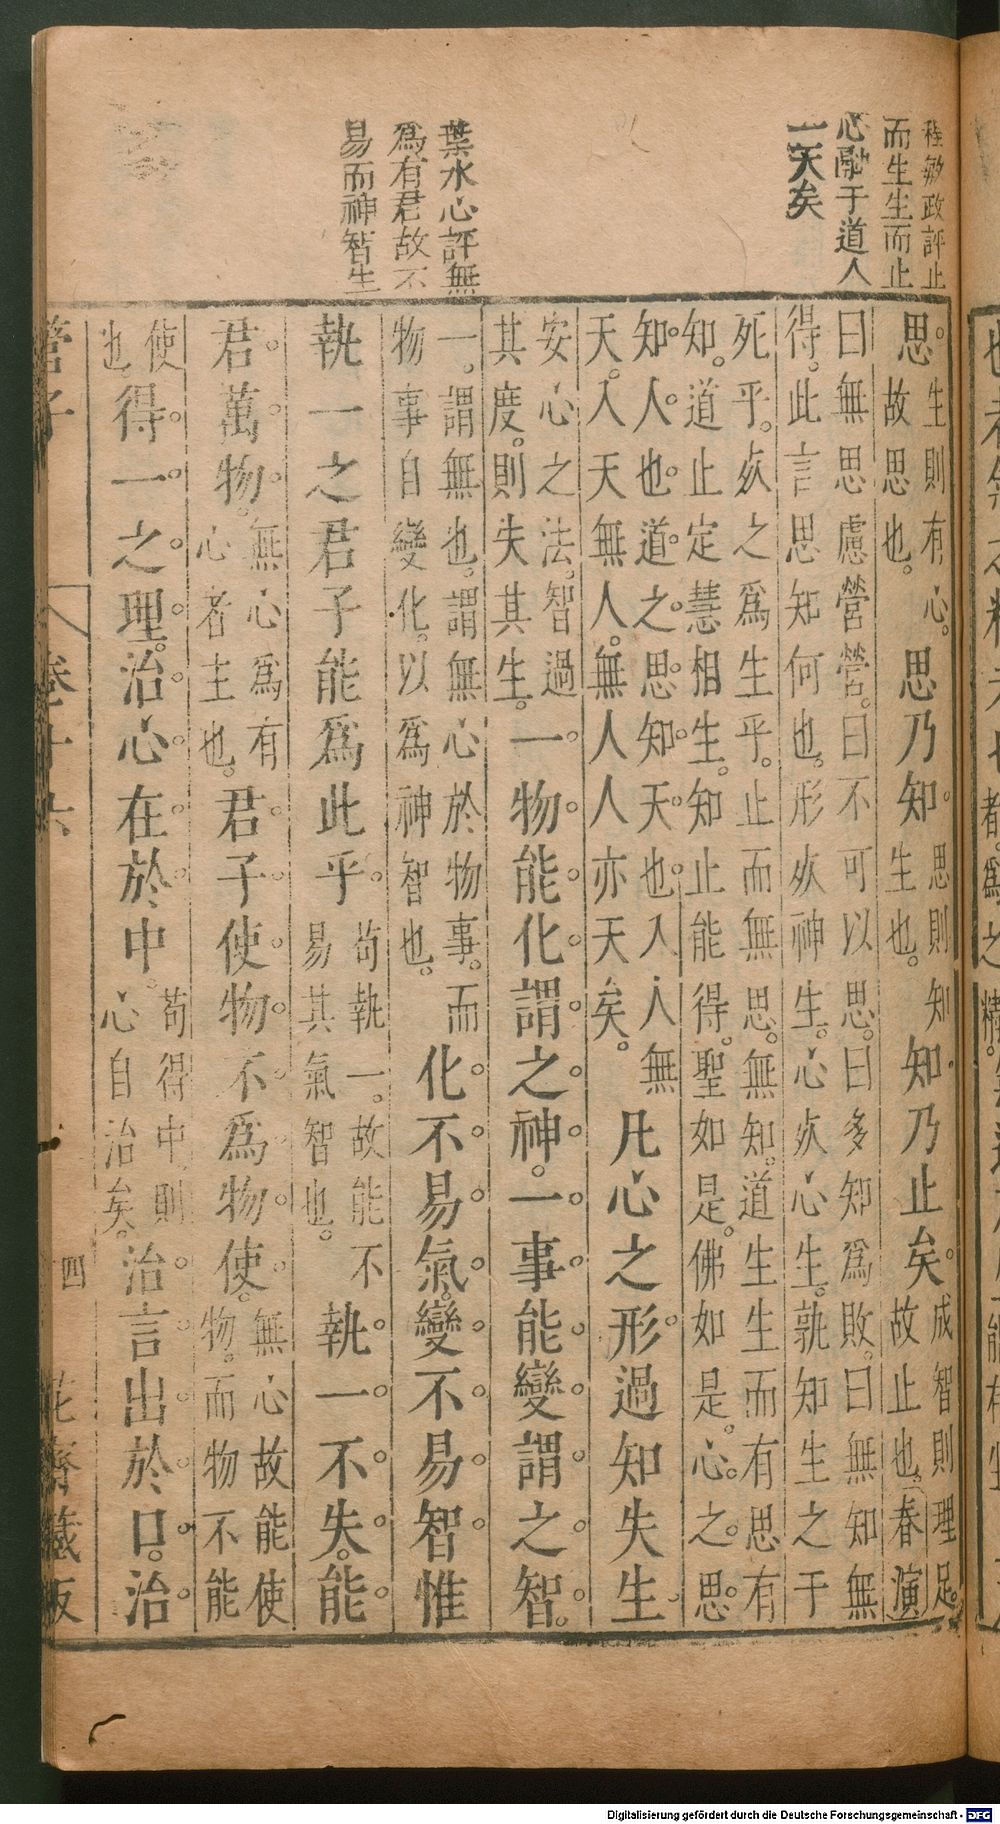 程敏政評止
而生生而止
心融于道人
一天矣
葉水心評無
為有君故不
易而神智生
思。生則有心。故思也。思乃知。思則知生也。知乃止矣。成智則理足。故止也。春演
曰無思慮營營。曰不可以思。曰多知為敗。曰無知無
得。此言思知何也。形㱾神生。心㱾心生。孰知生之于
死乎。㱾之為生乎。止而無思。無知。道生生而有思有
知。道止定慧相生。知止能得。聖如是。佛如是。心之思
知。人也。道之思知。天也。入人無
天。入天無人。無人人亦天矣。凡心之形過知失生
安心之法。智過其度。則失其生。一物能化謂之神。一事能變謂之智。
一。謂無也。謂無心於物事。而物事自變化。以為神智也。化不易氣。變不易智惟
執一之君子能為此乎苟執一。故能不易其氣智也。執一不失。能
君萬物。無心為有心者主也。君子使物不為物使。無心故能使物。而物不能
使也得一之理。治心在於中。苟得中則心自治矣。治言出於口。治
管子 卷十六 四 花齋藏版
Digitalisierung gefördert durch die Deutsche Forschungsgemeinschaft - DFG